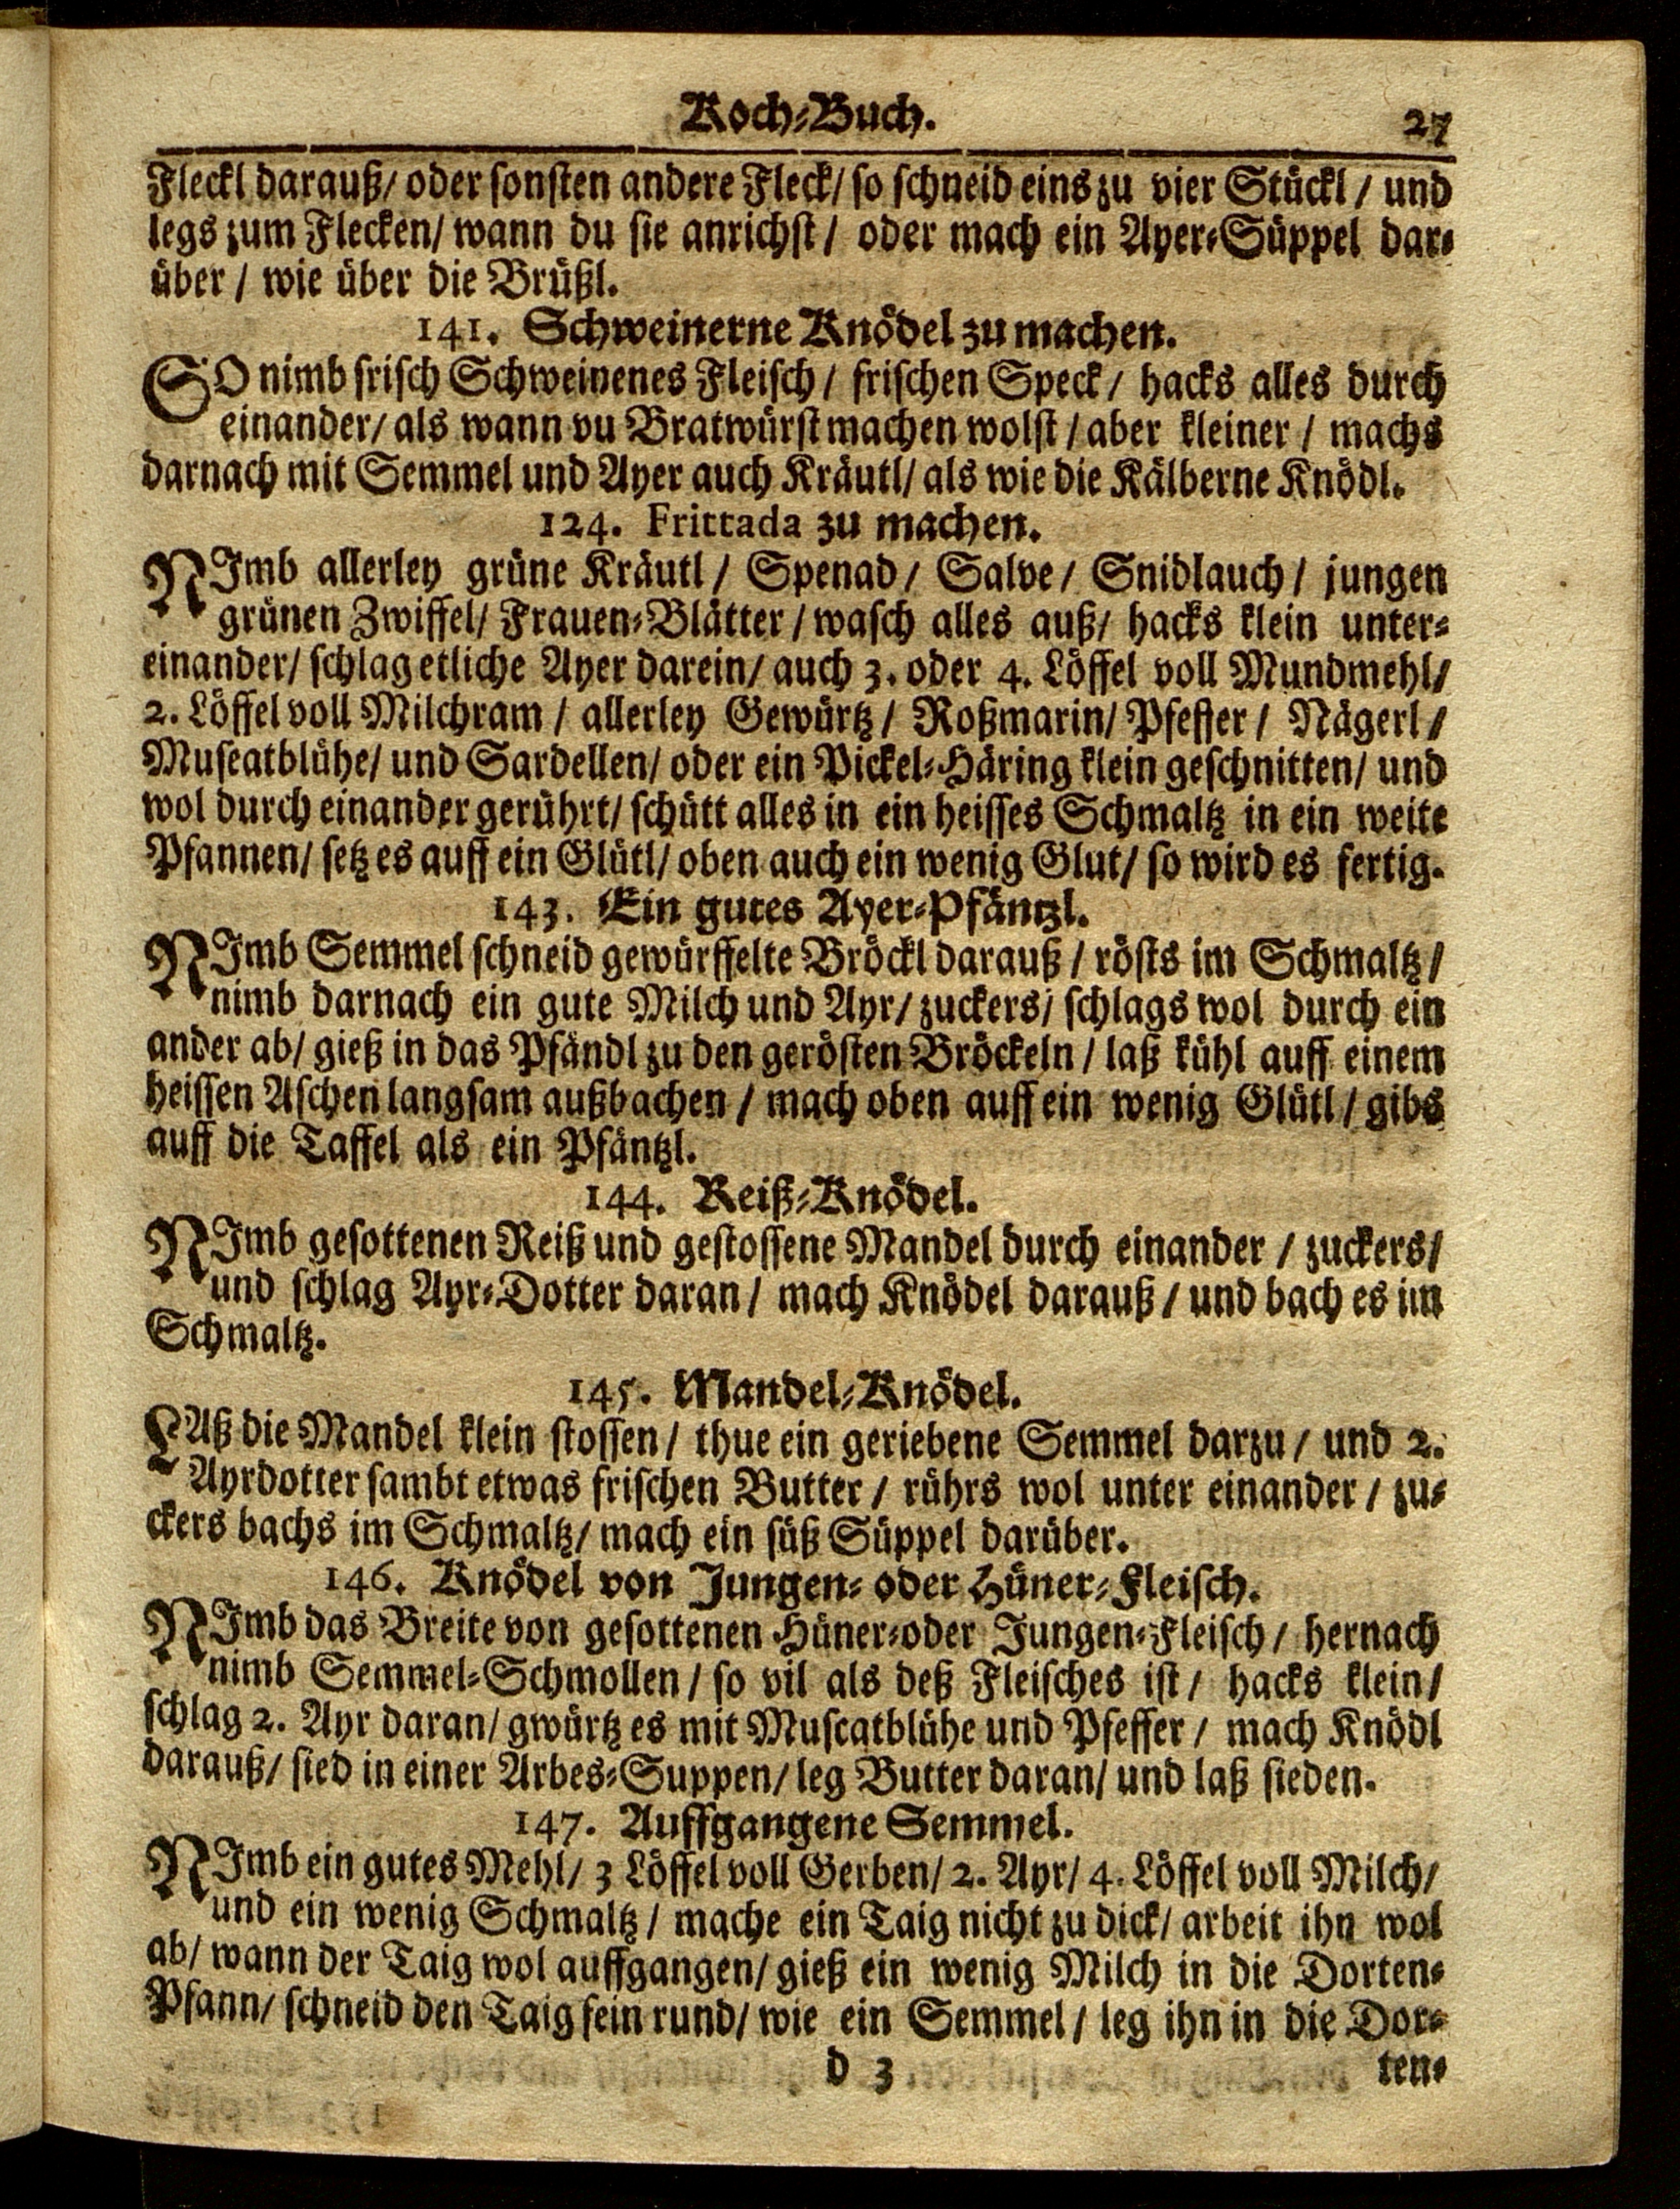 Koch-Buch. 27
Fleckl darauß/ oder sonsten andere Fleck/ so schneid eins zu vier Stückl / und
legs zum Flecken/ wann du sie anrichst / oder mach ein Ayer-Süppel dar-
über / wie über die Brüßl.
141. Schweinerne Knödel zu machen.
SO nimb frisch Schweinenes Fleisch / frischen Speck / hacks alles durch
einander/ als wann vu Bratwürst machen wolst / aber kleiner / machs
darnach mit Semmel und Ayer auch Kräutl/ als wie die Kälberne Knödl.
124. Frittada zu machen.
NImb allerley grüne Kräutl / Spenad / Salve / Snidlauch / jungen
grünen Zwiffel/ Frauen-Blätter / wasch alles auß/ hacks klein unter-
einander/ schlag etliche Ayer darein/ auch 3. oder 4. Löffel voll Mundmehl/
2. Löffel voll Milchram / allerley Gewürtz / Roßmarin/ Pfeffer / Nägerl /
Museatblühe/ und Sardellen/ oder ein Pickel-Häring klein geschnitten/ und
wol durch einander gerührt/ schütt alles in ein heisses Schmaltz in ein weite
Pfannen/ setz es auff ein Glütl/ oben auch ein wenig Glut/ so wird es fertig.
143. Ein gutes Ayer-Pfäntzl.
NImb Semmel schneid gewürffelte Bröckl darauß / rösts im Schmaltz /
nimb darnach ein gute Milch und Ayr/ zuckers/ schlags wol durch ein
ander ab/ gieß in das Pfändl zu den gerösten Bröckeln / laß kühl auff einem
heissen Aschen langsam außbachen / mach oben auff ein wenig Glütl / gibs
auff die Taffel als ein Pfäntzl.
144. Reiß-Knödel.
NImb gesottenen Reiß und gestossene Mandel durch einander / zuckers/
und schlag Ayr-Dotter daran / mach Knödel darauß / und bach es im
Schmaltz.
145. Mandel-Knödel.
LAß die Mandel klein stossen / thue ein geriebene Semmel darzu / und 2.
Ayrdotter sambt etwas frischen Butter / rührs wol unter einander / zu-
ckers bachs im Schmaltz/ mach ein süß Süppel darüber.
146. Knödel von Jungen- oder Hüner-Fleisch.
NImb das Breite von gesottenen Hüner-oder Jungen-Fleisch / hernach
nimb Semmel-Schmollen / so vil als deß Fleisches ist / hacks klein /
schlag 2. Ayr daran/ gwürtz es mit Muscatblühe und Pfeffer / mach Knödl
darauß/ sied in einer Arbes-Suppen/ leg Butter daran/ und laß sieden.
147. Auffgangene Semmel.
NImb ein gutes Mehl/ 3 Löffel voll Gerben/ 2. Ayr/ 4. Löffel voll Milch/
und ein wenig Schmaltz / mache ein Taig nicht zu dick/ arbeit ihn wol
ab/ wann der Taig wol auffgangen/ gieß ein wenig Milch in die Dorten-
Pfann/ schneid den Taig fein rund/ wie ein Semmel / leg ihn in die Dor-
d 3 ten-